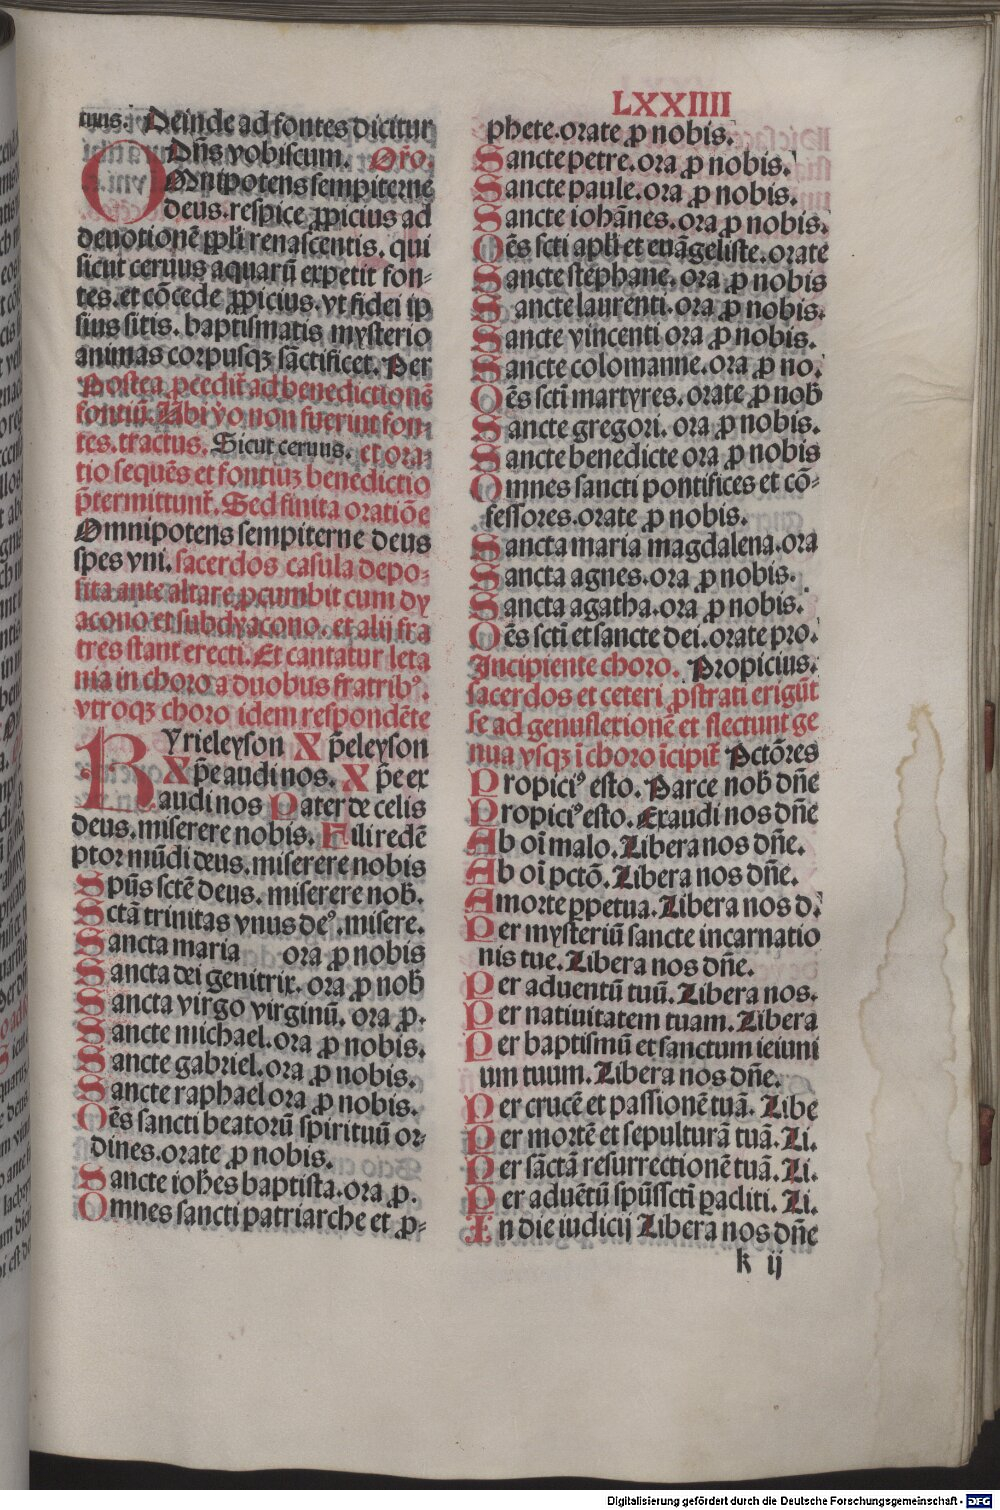 LXXIIII
tuus. Deinde ad fontes dicitur
Dñs vobiscum. Oro.
OMnipotens sempiterne
deus. respice ꝓpicius ad
deuotionē ppl'i renascentis. qui
sicut ceruus aquarū expetit fon-
tes. et cōcede ꝓpicius. vt fidei ip
sius sitis. baptismatis mysterio
animas corpusqꝫ sāctificet. Per
Postea ꝓcedit̄ ad benedictionē
fontiū. Ubi ṽo non fuerint fon-
tes. tractus. Sicut ceruus. et ora-
tio sequēs et fontiuꝫ benedictio
p̄termittunt̄. Sed finita oratiōe
Omnipotens sempiterne deus
spes vni. sacerdos casula depo-
sita ante altare ꝓcumbit cum dy
acono et subdyacono. et alij fra
tres stant erecti. Et cantatur leta
nia in choro a duobus fratribꝰ.
vtroqꝫ choro idem respondēte
KYrieleyson Xp̄eleyson
Xp̄e audi nos. Xp̄e ex
audi nos Pater de celis
deus. miserere nobis. Fili redē
ptor mūdi deus. miserere nobis
Spūs sctē deus. miserere nob̄.
Sctā trinitas vnus deꝰ. misere.
Sancta maria ora ꝓ nobis
Sancta dei genitrix. ora ꝓ nob̄
Sancta virgo virginū. ora ꝓ.
Sancte michael. ora ꝓ nobis.
Sancte gabriel. ora ꝓ nobis.
Sancte raphael ora ꝓ nobis.
Oēs sancti beatorū spirituū or-
dines. orate ꝓ nobis.
Sancte ioh̄es baptista. ora ꝓ.
Omnes sancti patriarche et ꝓ-
phete. orate ꝓ nobis.
Sancte petre. ora ꝓ nobis.
Sancte paule. ora ꝓ nobis.
Sancte iohānes. ora ꝓ nobis.
Oēs scti apl'i et euāgeliste. orate
Sancte stephane. ora ꝓ nobis
Sancte laurenti. ora ꝓ nobis.
Sancte vincenti ora ꝓ nobis.
Sancte colomanne. ora ꝓ no.
Oēs sctī martyres. orate ꝓ nob̄
Sancte gregori. ora ꝓ nobis.
Sancte benedicte ora ꝓ nobis
Omnes sancti pontifices et cō-
fessores. orate ꝓ nobis.
Sancta maria magdalena. ora
Sancta agnes. ora ꝓ nobis.
Sancta agatha. ora ꝓ nobis.
Oēs sctī et sancte dei. orate pro.
Incipiente choro. Propicius.
sacerdos et ceteri ꝓstrati erigūt
se ad genuflexionē et flectunt ge
nua vsqꝫ ī choro īcipit̄ Pctōres
Propiciꝰ esto. Parce nob̄ dñe
Propiciꝰ esto. Exaudi nos dñe
Ab oī malo. Libera nos dñe.
Ab oī pctō. Libera nos dñe.
A morte ꝑpetua. Libera nos d.
Per mysteriū sancte incarnatio
nis tue. Libera nos dñe.
Per aduentū tuū. Libera nos.
Per natiuitatem tuam. Libera
Per baptismū et sanctum ieiuni
um tuum. Libera nos dñe.
Per crucē et passionē tuā. Libe
Per mortē et sepulturā tuā. Li.
Per sāctā resurrectionē tuā. Li.
Per aduētū spūssctī ꝑacliti. Li.
In die iudicij Libera nos dñe
k ij
Digitalisierung gefördert durch die Deutsche Forschungsgemeinschaft - DFG